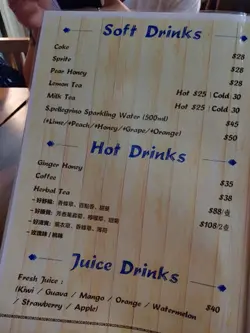 Soft Drinks
Coke $28
Sprite $28
Pear Honey $28
Lemon Tea Hot $25 | Cold 30
Milk Tea Hot $25 | Cold 30
S.pellegrino Sparkling Water (500ml) $45
(+Lime/+Peach/+Honey/+Grape/+Orange) $50
Hot Drinks
Ginger Honey $35
Coffee $38
Herbal Tea $88/壺
$108/2壺
Juice Drinks
Fresh Juice : $40
(Kiwi / Guava / Mango / Orange / Watermelon
/ Strawberry / Apple)